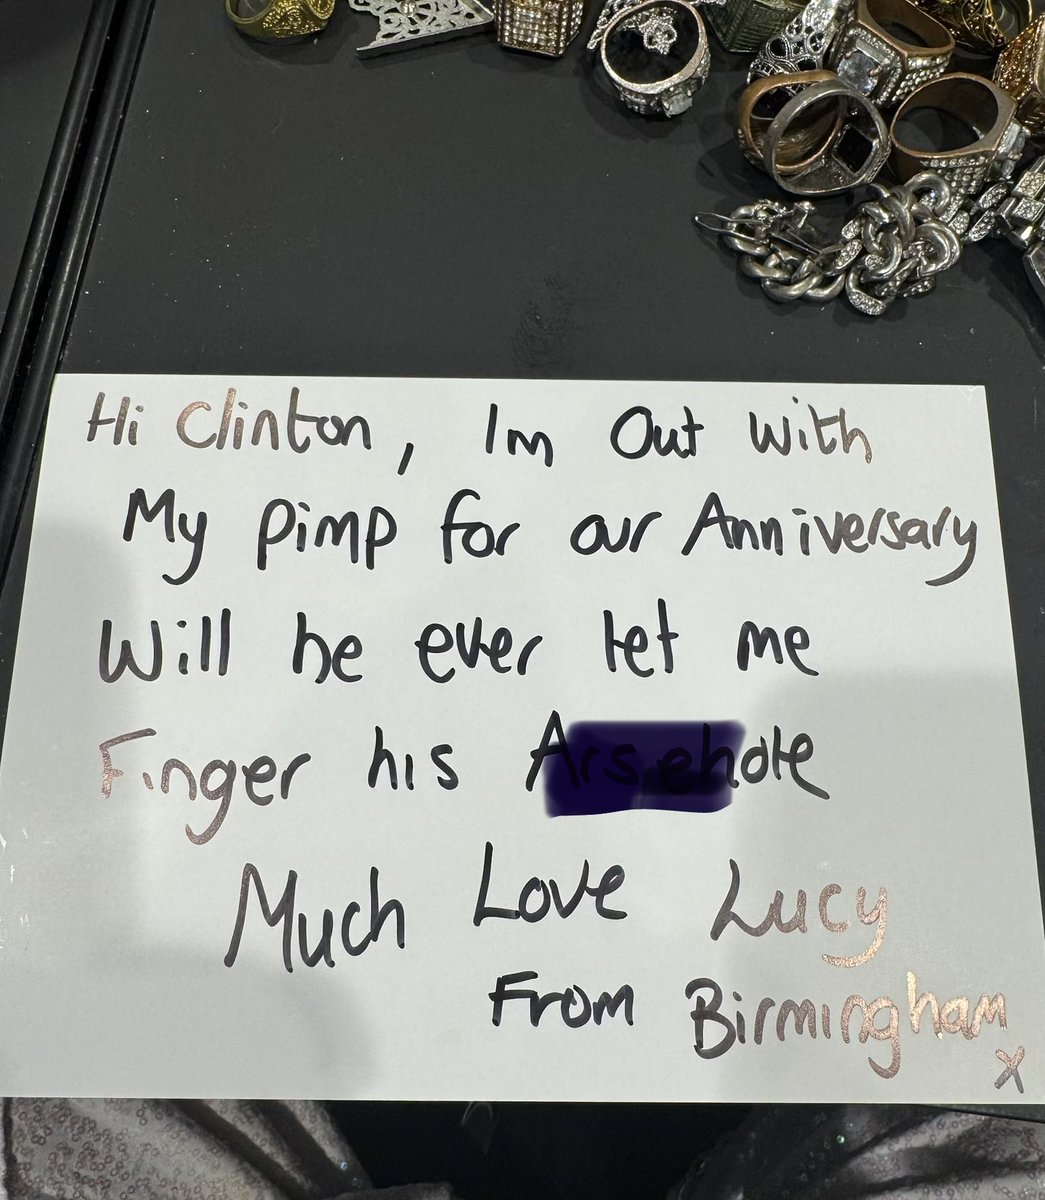 Hi Clinton, Im Out with
My pimp for our Anniversary
Will he ever let me
Finger his Arsehole
Much Love Lucy
From Birmingham
x